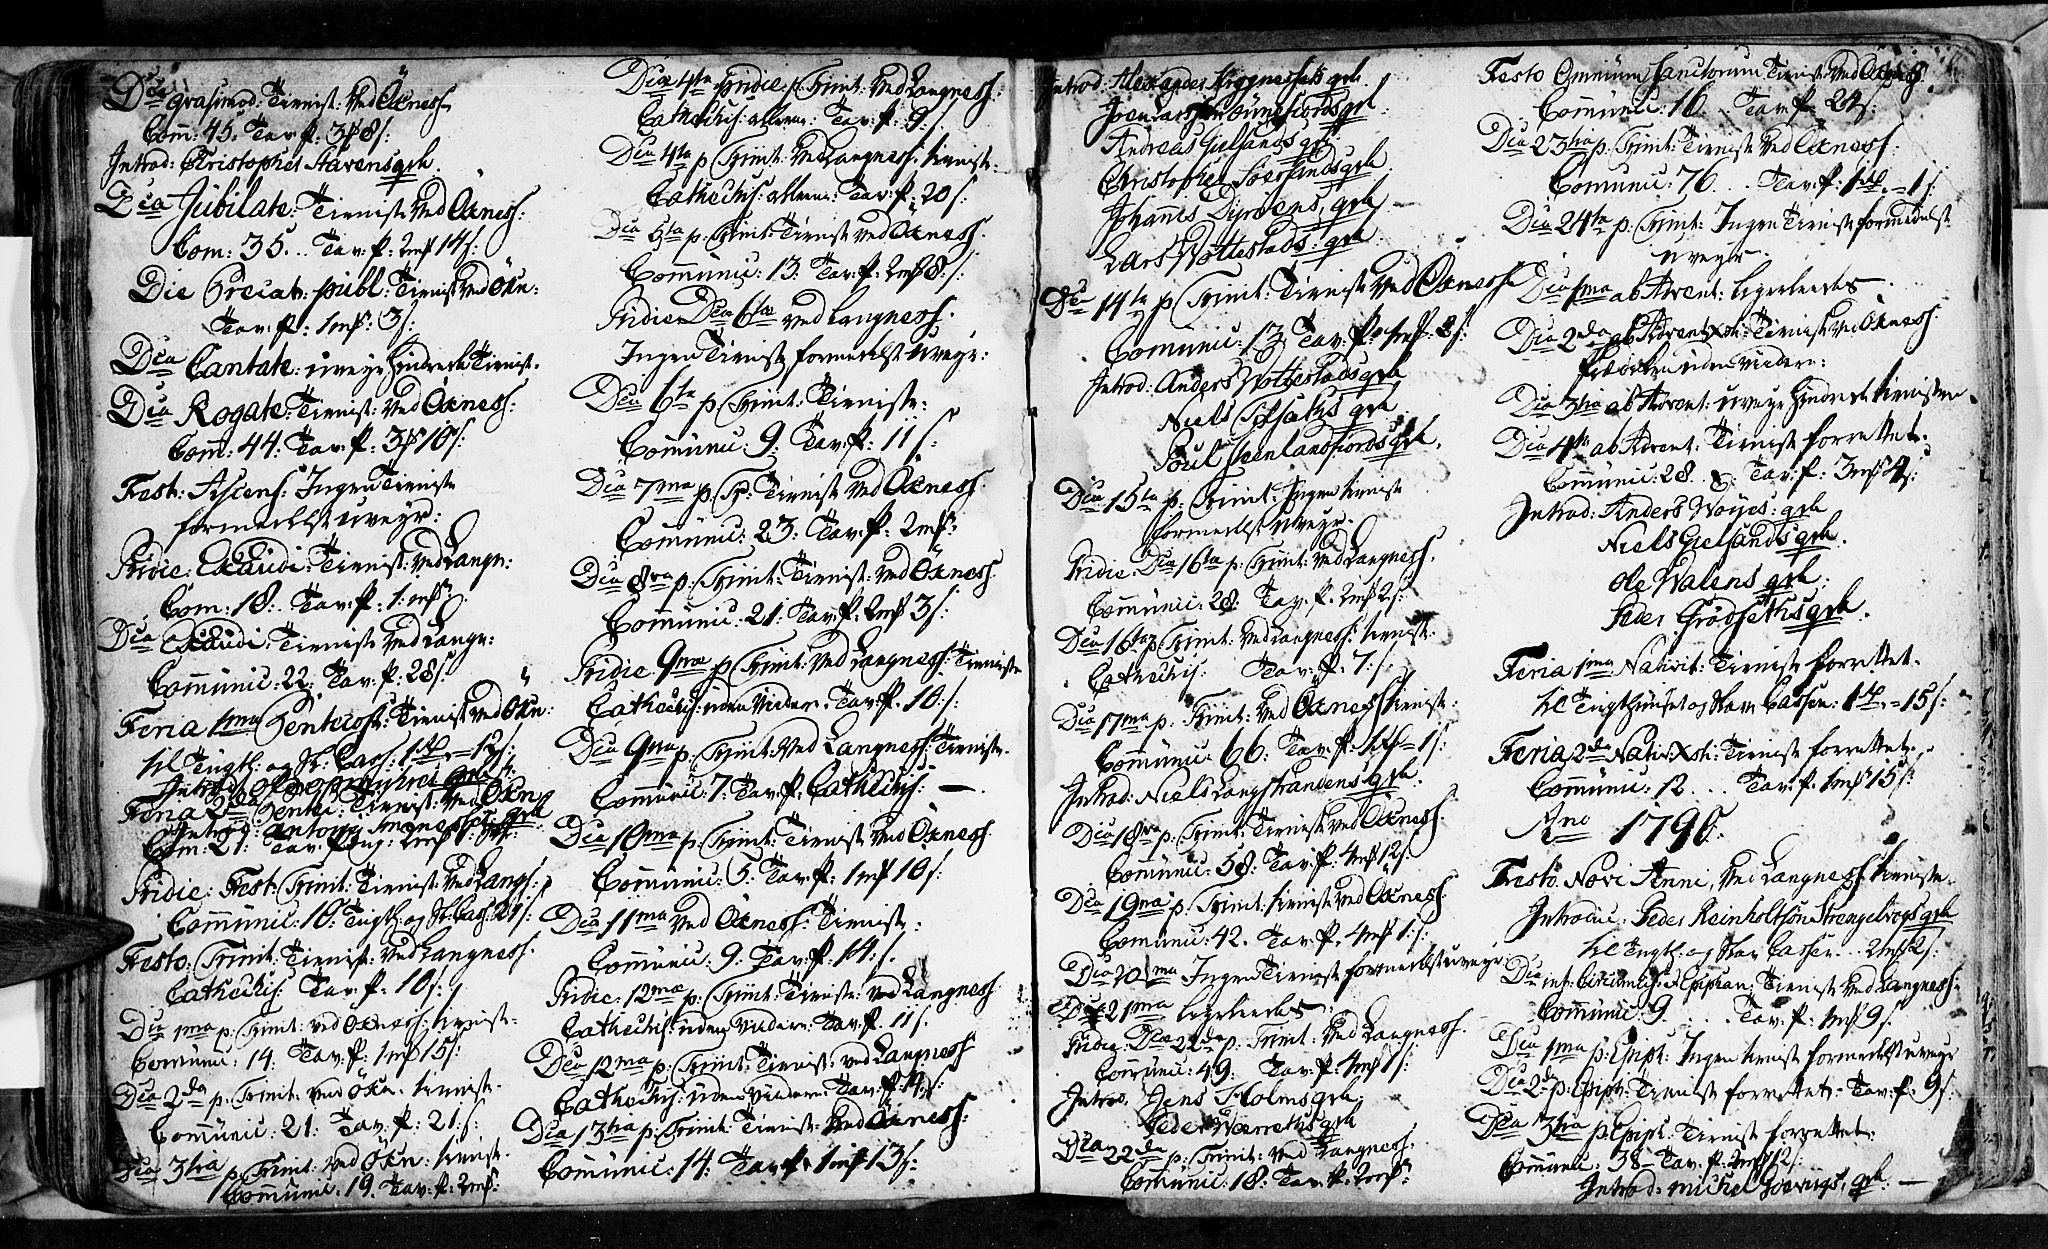 Dca qvasimod: Tienist: Ved Öxness
Com: 45. Tav: p: 3 8 s:
Introd: Christopher Havens qvh
Dca Jubilate: Tienist: Ved Öxness:
Com: 35... Tav: p: 2mk 14 s:
Die Precat: publ: Tienist Ved Öxn:
Tav: p: 1mk: 3 s:
Dca Cantate: uveyr hindrede Tienist.
Dca Rogate: Tienist: Ved Öxness:
Com: 44: Tav: p: 3 10 s:
Fest: Ascens: Ingen Tieniste
formedelst uveyr:
Pridie: Exaudi: Tienist: Ved Langn:
Com: 18: Tav: p: 1: mk:
Dca Exaudi: Tieniste Ved Langn:
Communic: 22: Tav: p: 28 s:
Feria 1ma Pentecost: Tienist Ved Öxn:
til Tugth: og Sk: Cass: 12 s:
Introd:
Feria 2da Pentec: Tienist: Ved Öxn
Introd: Antoni qvh
Com: 21: Tav: 2mk
Pridie: Fest: Trinit: Tienist Ved Langn:
Communic: 10: Tugth: og Sk: Cass: 21 s:
Festo: Trinit: Tienist: Ved Langness:
Cathechis: Tav: p: 10 s:
Dca 1ma p: Trinit: ved Öxness: tienist:
Communic: 14: Tav: p: 1mk 15 s:
Dca 2da p: Trinit: Ved Öxn: tienist:
Communic: 21: Tav: p: 21: s:
Dca 3tia p: Trinit: Ved Öxn: tienist.
Communic: 19. Tav: p: 2mk:
Dca 4ta Pridie p: Trinit: Ved Langness:
Cathechis: allene: Tav: p: 9 s:
Dca 4ta p: Trinit: Ved Langness: tienist:
Cathechis: allene: Tav: p: 20 s:
Dca 5ta p: Trinit: Tienist ved Öxness:
Communic: 13: Tav: p: 2mk 8: s:
Pridie Dca 6tæ ved Langness:
Ingen Tieniste formedelst uveyr:
Dca 6ta p: Trinit: Tieniste:
Communic: 9: Tav: p: 11 s:
Dca 7ma p: Tr: Tienist Ved Öxness:
Communic: 23: Tav: p: 2mk:
Dca 8va p: Trinit: Tienist: Ved Öxness:
Communic: 21: Tav: p: 2mk 3 s:
Pridie 9næ p: Trinit: Ved Langness: Tieniste
Cathechis: uden Videre: Tav: p: 10 s:
Dca 9na p: Trinit: Ved Langness: Tienist:
Communic: 7: Tav: p: Cathechis: —
Dca 10ma p: Trinit: Tieniste Ved Öxness
Communic: 5: Tav: p: 1mk 10 s:
Dca 11ma Ved Öxness: Tienist:
Communic: 9: Tav: p: 14: s:
Pridie: 12mæ p: Trinit: Tieniste: Ved Langness:
Cathechis: uden Videre: Tav: p: 11 s:
Dca 12ma p: Trinit: Tienist: ved Langness
Cathechis: uden Videre: Tav: p:
Dca 13tia p: Trinit: Tienist: Ved Öxness:
Communic: 14: Tav: p: 1mk 13 s:
Introd: Alexander qvh
qvh
Andreas Gielsands qvh
Christopher qvh
Johannes Dyröens: qvh
Lars Wottestads: qvh
Dca 14ta p: Trinit: Tienist Ved Öxness
Communic: 13: Tav: p: 1mk. 8 s:
Introd: Anders Wottestads qvh
Niels qvh
Poul Steenlandsfiords qvh.
Dca 15ta p: Trinit: Ingen tienist
formedelst uveyr.
Pridie: Dca 16ta p: Trinit: Ved Langness.
Communic: 28. Tav: p: 2mk 2 s:
Dca 16ta p: Trinit: Ved Langness: tienist:
Cathechis: Tav: p: 7: s:
Dca 17ma p: Trinit: Ved Öxness tienist:
Communic: 66: Tav: p: 1 s:
Introd: Niels Langstrandens qvh.
Dca 18va p: Trinit: Tienist Ved Öxness:
Communic: 58: Tav: p: 4mk 12 s:
Dca 19na p: Trinit: tienist Ved Öxness:
Communic: 42. Tav: p: 4mk 1: s:
Dca 20ma Ingen Tienist formedelst uveyr
Dca 21ma ligeledes
Pridie: Dca 22da p: Trinit: Ved Langness.
Communic: 49: Tav: p: 4mk 1 s:
Introd. Jens Holms qvh:
Peder qvh
Dca 22da p: Trinit: Ved Langness:
Communic: 18: Tav: p: 2mk:
Festo Omnium Sanctorum Tienist: Ved Öxness:
Communic: 16. Tav: p: 24 s:
Dca 23tia p: Trinit: Tienist Ved Öxness:
Communic: 76... Tav: p: 1 s:
Dca 24ta p: Trinit: Ingen Tienist formedelst
uveyr.
Dca 1ma ab Advent: ligeledes
Dca 2da ab Advent: Tienist Ved Öxness
uden Videre:
Dca 3tia ab Advent: uveyr hindrede tienisten.
Dca 4ta ab Advent: Tienist forrettet:
Communic: 28... Tav: p: 3mk 4 s:
Introd: Anders Wöyes: qvh
Niels Gielsands qvh.
Ole Walens qvh:
Peder Grödsethts qvh.
Feria 1ma Nativit: Tienist forrettet.
til Tugthuuset og Skav Cassen: 15 s:
Feria 2da Nativ: Xsti: Tienist forrettet:
Communic: 12... Tav: p: 1mk 15 s:
Ano 1796.
Festo Novi Anni, Ved Langness tieniste.
Introduc: Peder Reinholtsön Strengelvogs qvh
til Tugth: og Skav Cassen... 2mk 2 s:
Dca int: Circumcis: & Epiphan: Tienist Ved Langness:
Communic: 9... Tav: p: 1mk 9 s:
Dca 1ma p: Epiph: Ingen tienist formedelst uveyr
Dca 2da p: Epiph: Tienist forrettet: Tav: p: 9 s:
Dca 3tia p: Epiph: Tienist forrettet:
Communic: 38 Tav: p: 2mk 12 s:
Introd: Michel qvh. —